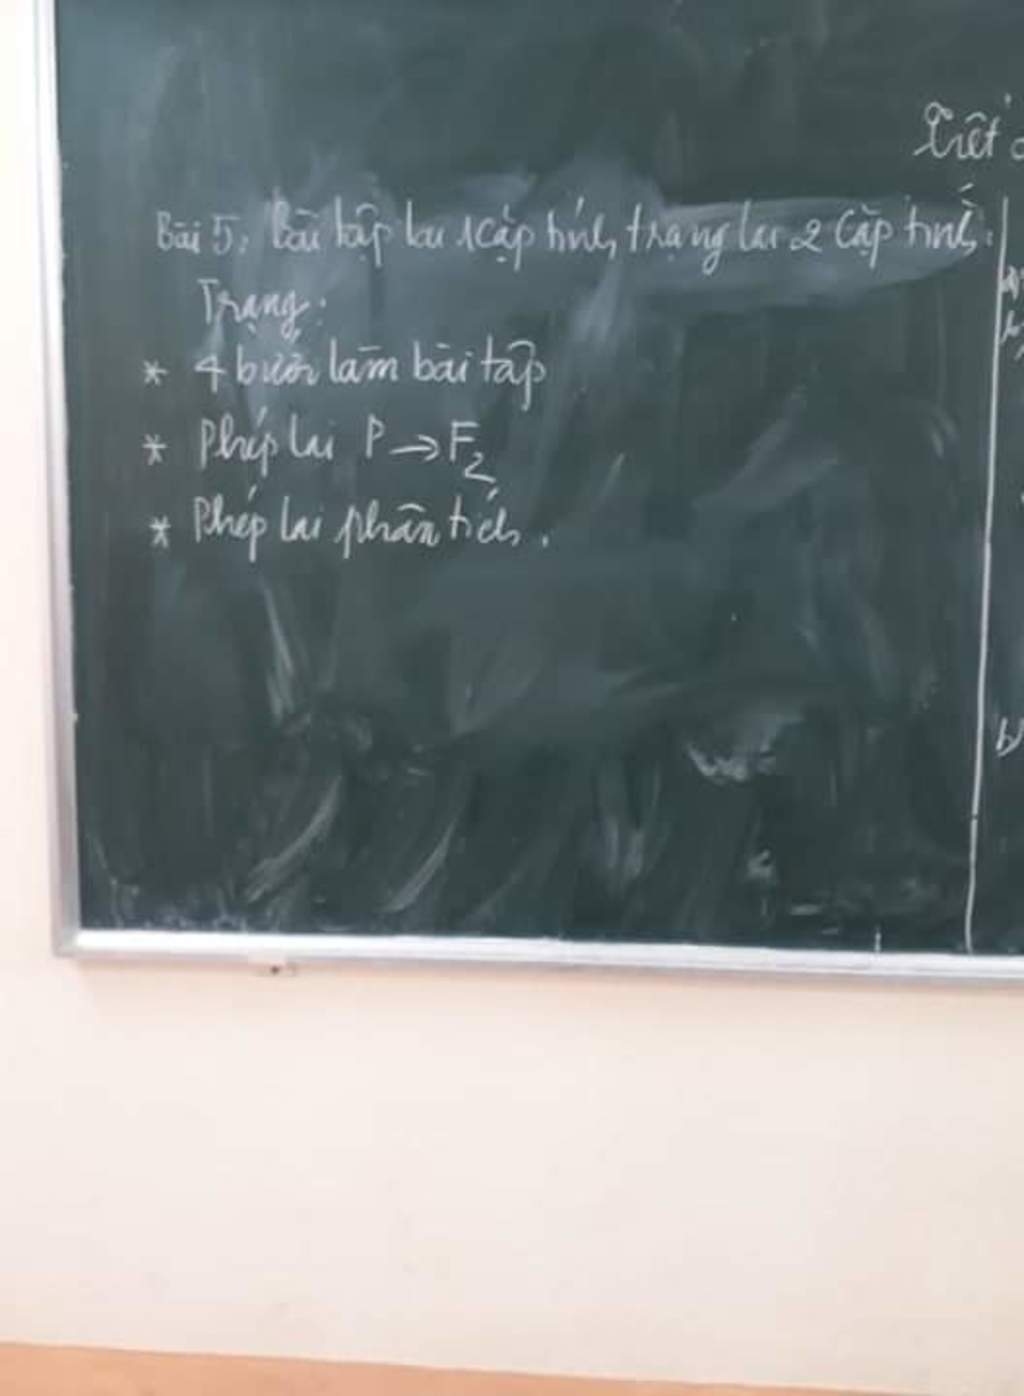 Tiết
Bài 5: Bài tập lai 1 cặp tính trạng lai 2 cặp tính
Trạng:
* 4 bước làm bài tập
* Phép lai P → F₂
* Phép lai phân tích.
b)